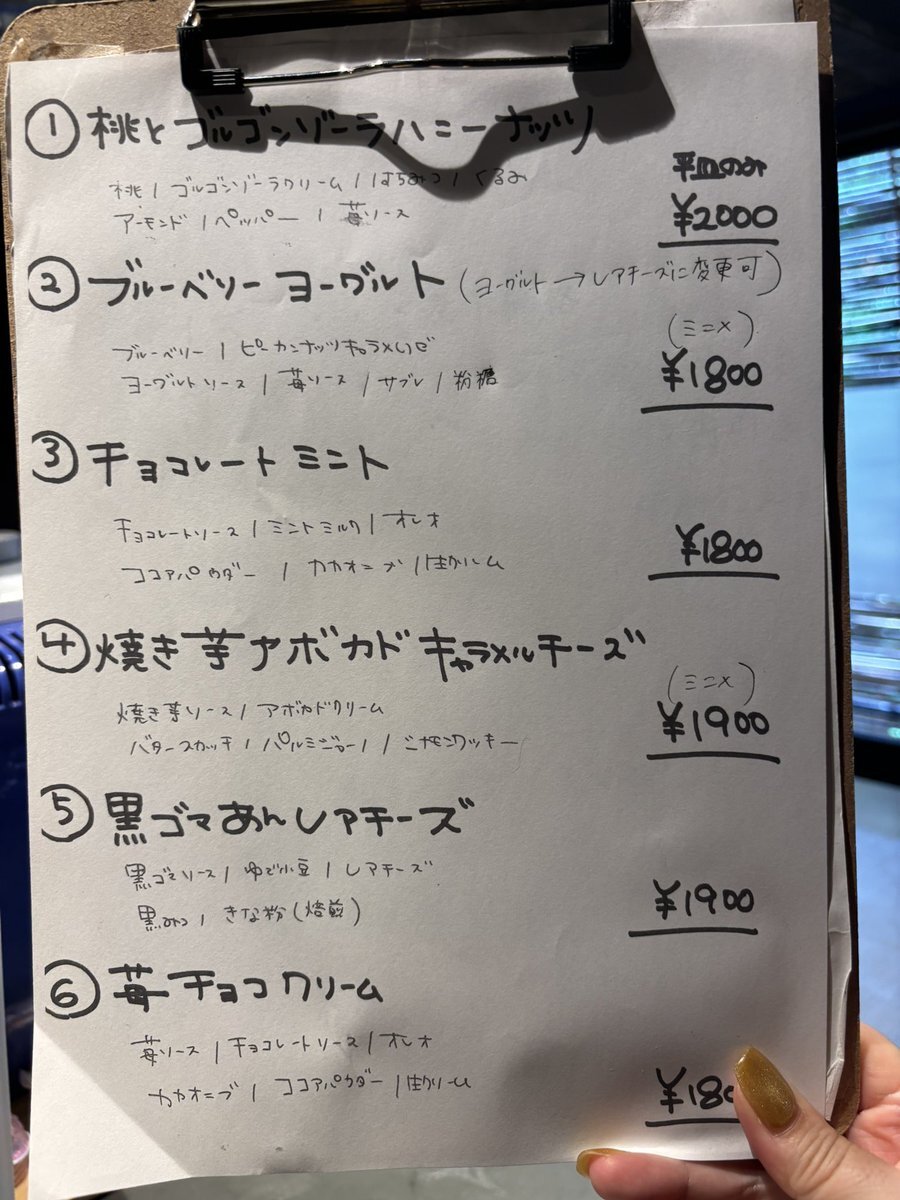 ① 桃とゴルゴンゾーラハニーナッツ
桃 / ゴルゴンゾーラクリーム / はちみつ / くるみ
平皿のみ
アーモンド / ペッパー / 苺ソース
¥2000
② ブルーベリーヨーグルト (ヨーグルト→レアチーズに変更可)
(ミニ×)
ブルーベリー / ピーカンナッツキャラメリゼ
ヨーグルトソース / 苺ソース / サブレ / 粉糖
¥1800
③ チョコレートミント
チョコレートソース / ミントミルク / オレオ
ココアパウダー / カカオニブ / 生クリーム
¥1800
④ 焼き芋アボカドキャラメルチーズ
(ミニ×)
焼き芋ソース / アボカドクリーム
バタースカッチ / パルミジャーノ / シナモンクッキー
¥1900
⑤ 黒ゴマあんレアチーズ
黒ゴマソース / ゆで小豆 / レアチーズ
黒みつ / きな粉(焙煎)
¥1900
⑥ 苺チョコクリーム
苺ソース / チョコレートソース / オレオ
カカオニブ / ココアパウダー / 生クリーム